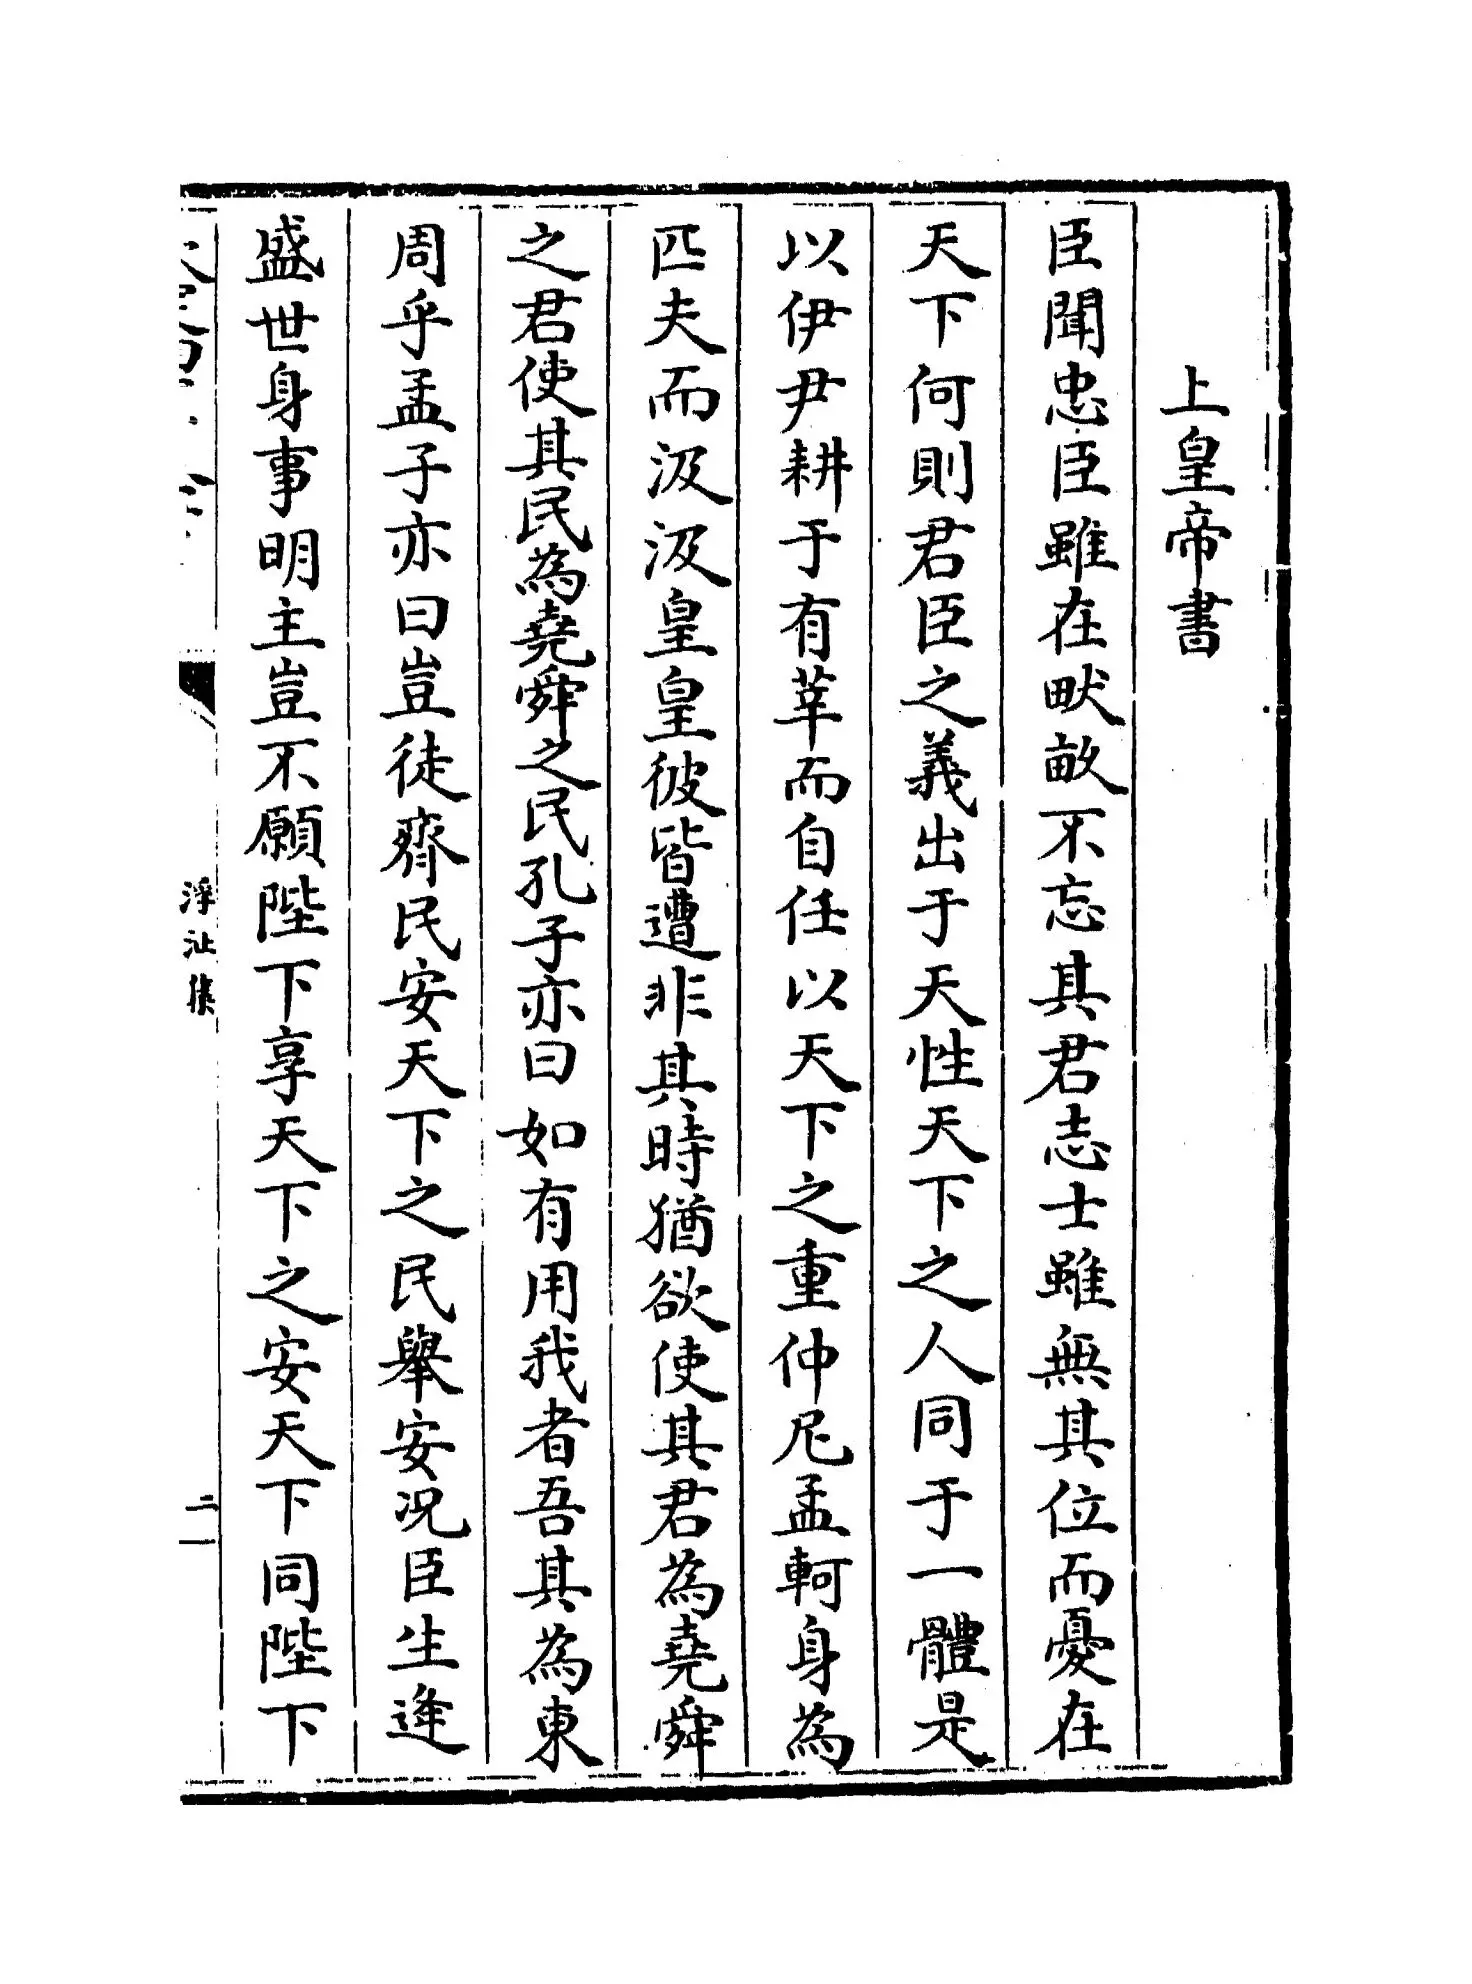 上皇帝書
臣聞忠臣雖在畎畝不忘其君志士雖無其位而憂在
天下何則君臣之義出于天性天下之人同于一體是
以伊尹耕于有莘而自任以天下之重仲尼孟軻身為
匹夫而汲汲皇皇彼皆遭非其時猶欲使其君為堯舜
之君使其民為堯舜之民孔子亦曰如有用我者吾其為東
周乎孟子亦曰豈徒齊民安天下之民舉安況臣生逢
盛世身事明主豈不願陛下享天下之安天下同陛下
浮沚集
二